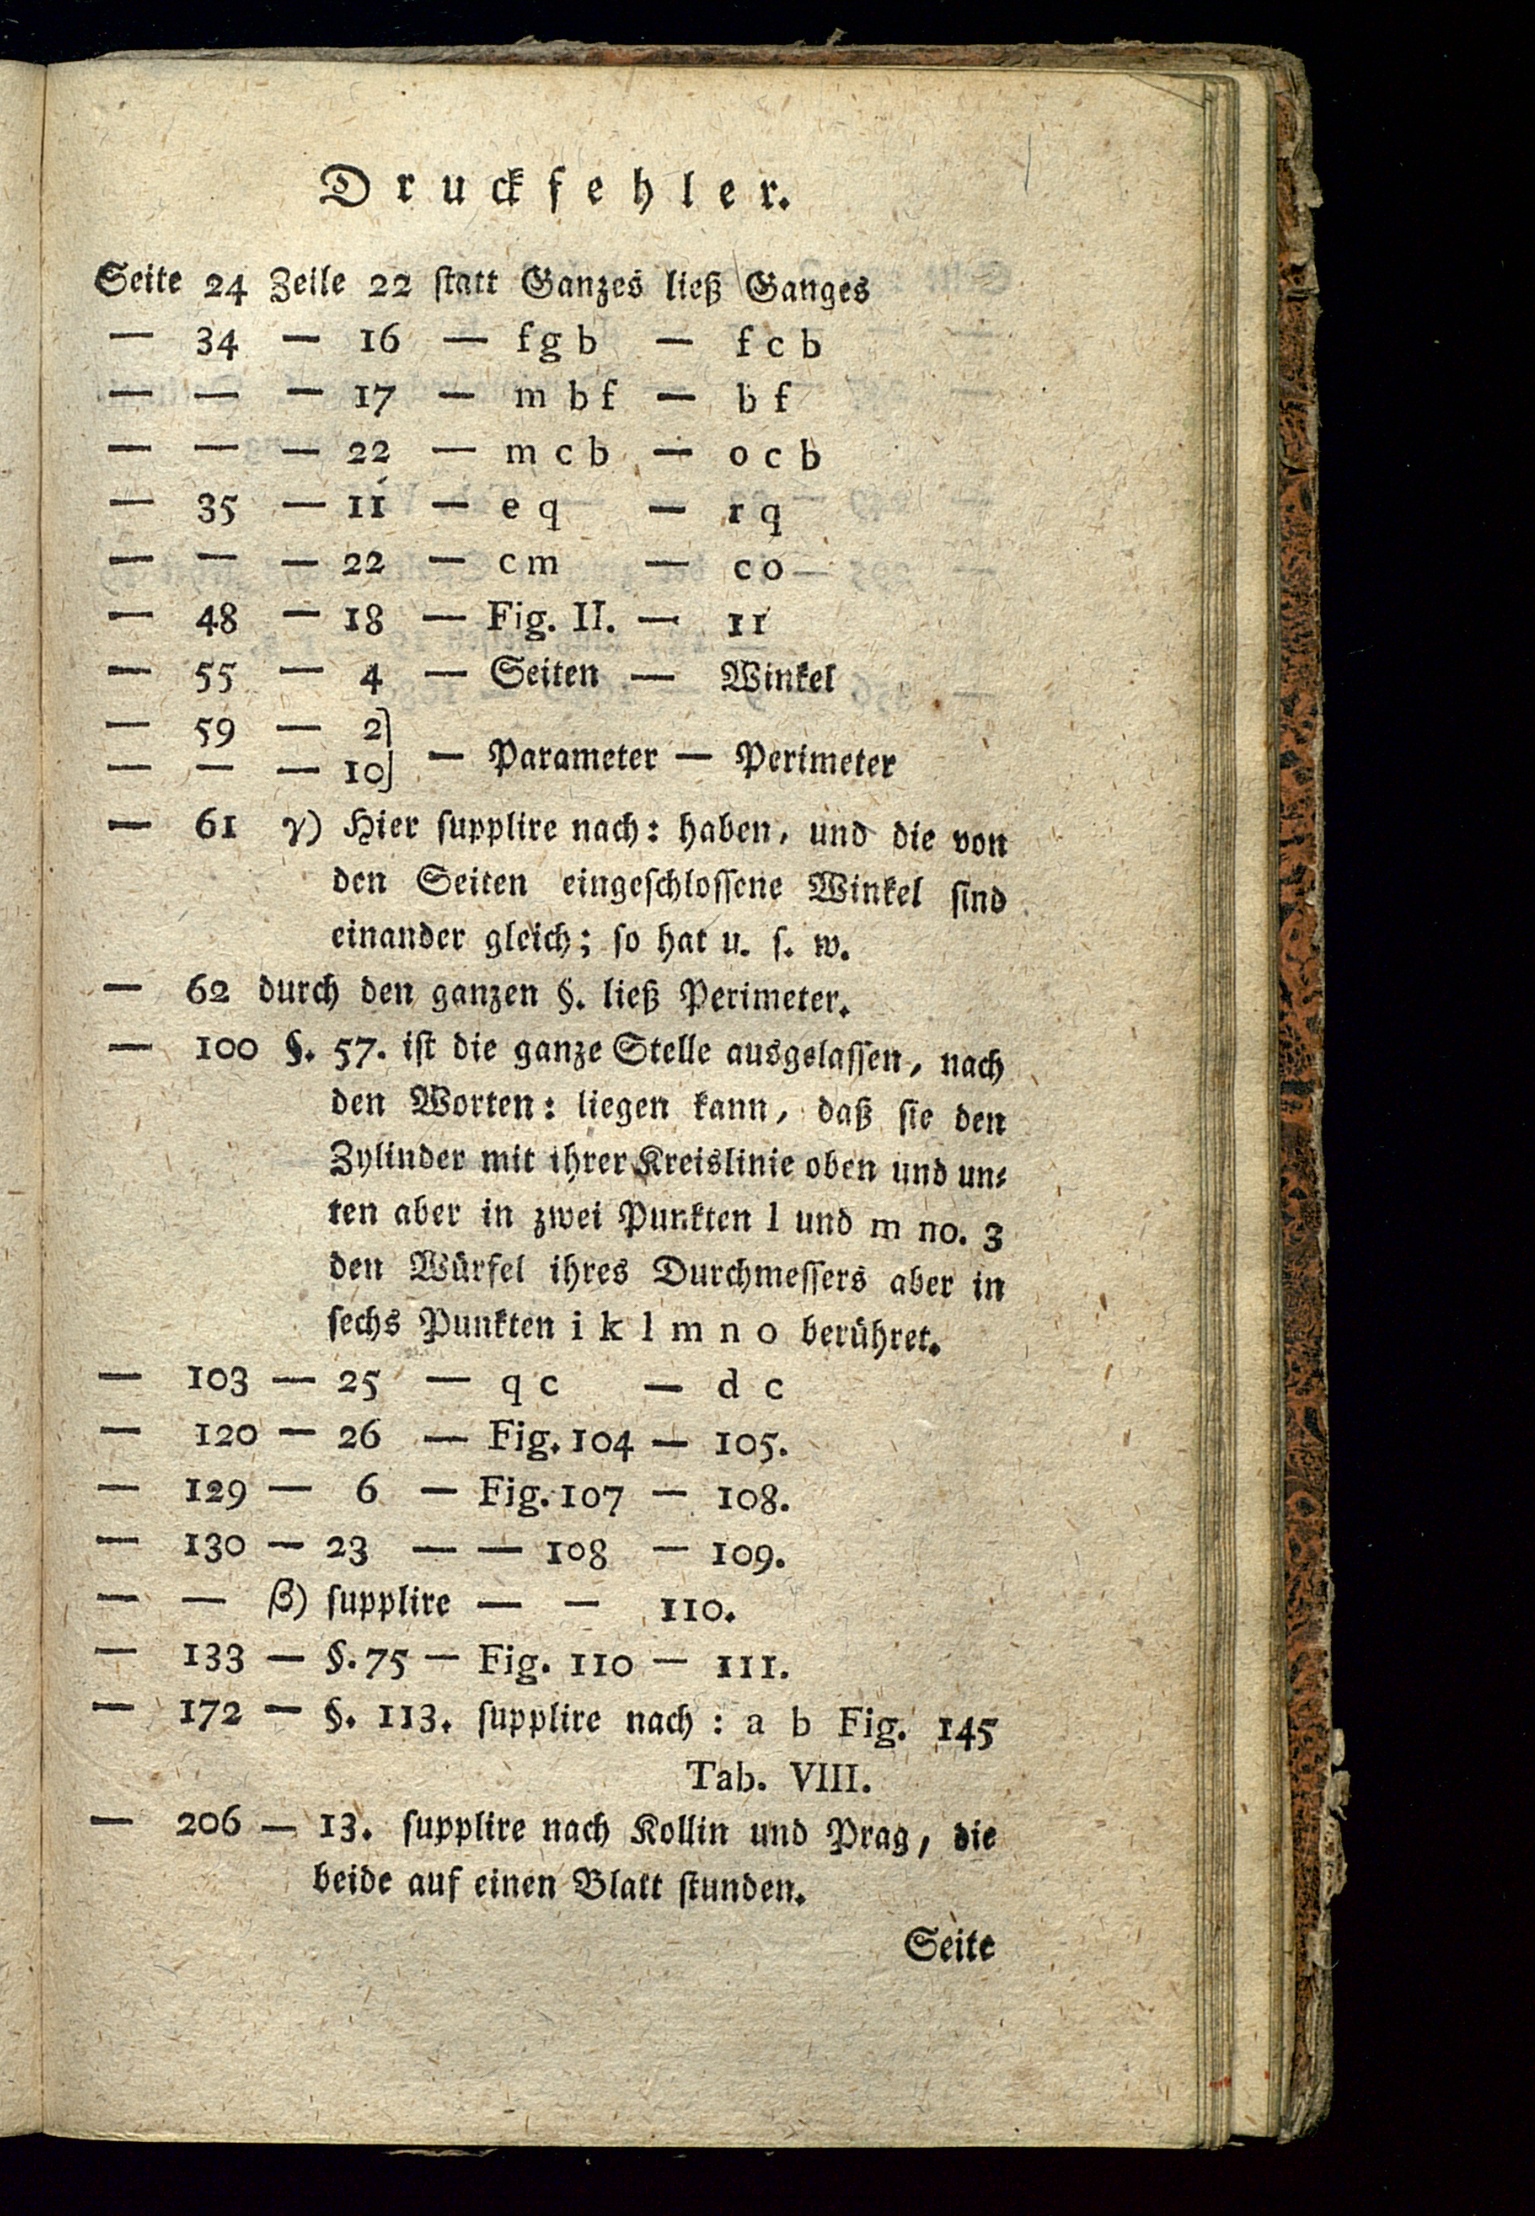 Druckfehler.
Seite 24 Zeile 22 statt Ganzes ließ Ganges
— 34 — 16 — f g b — f c b
— — — 17 — m b f — b f
— — — 22 — m c b — o c b
— 35 — 11 — e q — r q
— — — 22 — c m — c o
— 48 — 18 — Fig. II. — 11
— 55 — 4 — Seiten — Winkel
— 59 — 2]
— — — 10] — Parameter — Perimeter
— 61 γ) Hier supplire nach: haben, und die von
den Seiten eingeschlossene Winkel sind
einander gleich; so hat u. s. w.
— 62 durch den ganzen §. ließ Perimeter.
— 100 §. 57. ist die ganze Stelle ausgelassen, nach
den Worten: liegen kann, daß sie den
Zylinder mit ihrer Kreislinie oben und un⸗
ten aber in zwei Punkten l und m no. 3
den Würfel ihres Durchmessers aber in
sechs Punkten i k l m n o berühret.
— 103 — 25 — q c — d c
— 120 — 26 — Fig. 104 — 105.
— 129 — 6 — Fig. 107 — 108.
— 130 — 23 — — 108 — 109.
— — β) supplire — — 110.
— 133 — §. 75 — Fig. 110 — 111.
— 172 — §. 113. supplire nach: a b Fig. 145
Tab. VIII.
— 206 — 13. supplire nach Kollin und Prag, die
beide auf einen Blatt stunden.
Seite